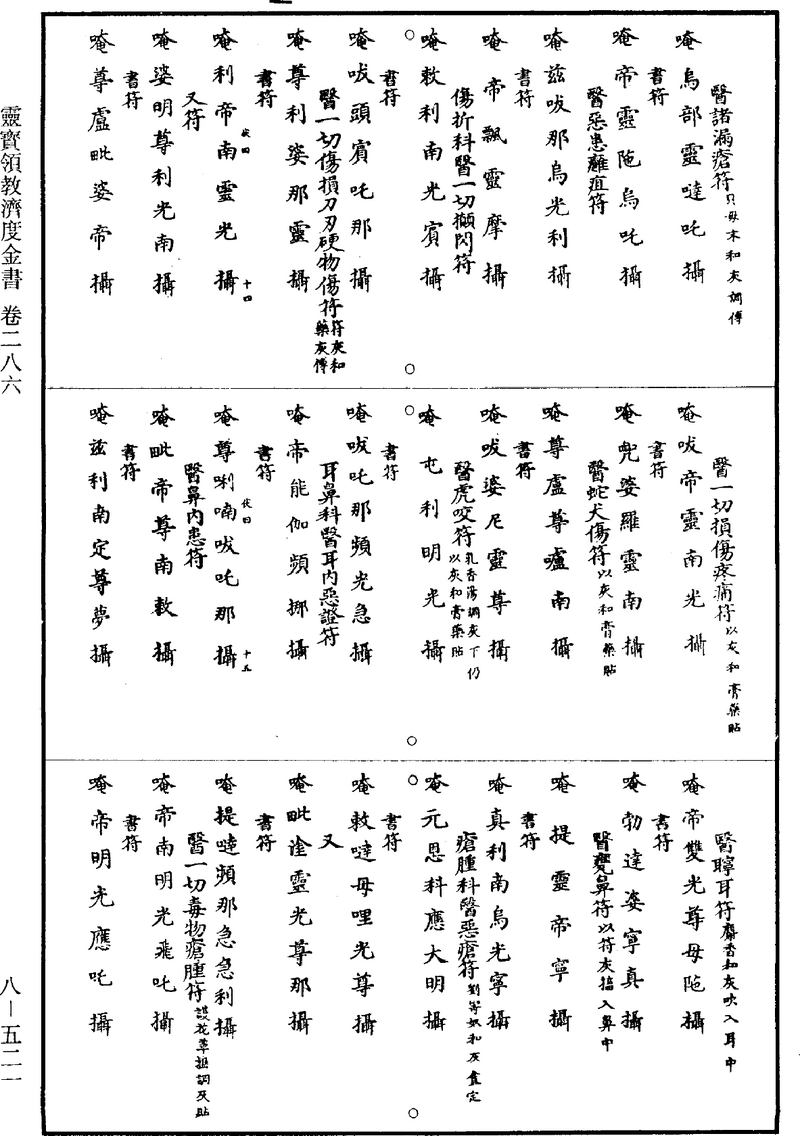 靈寶領教濟度金書 卷二八六
八—五二一
醫諸漏瘡符
唵烏部靈噠吒攝
書符
唵帝靈陁烏吒攝
醫惡患離疽符
唵茲呅那烏光利攝
書符
唵帝飄靈摩攝
傷折科醫一切攧閃符
唵敕利南光賓攝
書符
唵呅頭賓吒那攝
醫一切傷損刀刃硬物傷符符灰和藥灰傅
唵尊利娑那靈攝
書符
唵利帝南靈光攝
十四
又符
唵娑明尊利光南攝
書符
唵尊盧毗娑帝攝
醫一切損傷疼痛符以灰和膏藥貼
唵呅帝靈南光攝
書符
唵兜婆羅靈南攝
醫蛇犬傷符以灰和膏藥貼
唵尊盧尊嚧南攝
書符
唵呅婆尼靈尊攝
醫虎咬符乳香湯調灰下仍以灰和膏藥貼
唵屯利明光攝
書符
唵呅吒那頻光急攝
耳鼻科醫耳內惡證符
唵帝能伽頻挪攝
書符
唵尊唎喃呅吒那攝
十五
醫鼻內患符
唵毗帝尊南敕攝
書符
唵茲利南定尊夢攝
醫聤耳符麝香和灰吹入耳中
唵帝雙光尊母陁攝
書符
唵勃達娑寧真攝
醫齆鼻符以符灰搐入鼻中
唵提靈帝寧攝
書符
唵真利南烏光寧攝
瘡腫科醫惡瘡符劉寄奴和灰
唵元思科應大明攝
書符
唵敕噠母哩光尊攝
又
唵毗詮靈光尊那攝
書符
唵提噠頻那急急利攝
醫一切毒物瘡腫符
唵帝南明光飛吒攝
書符
唵帝明光應吒攝